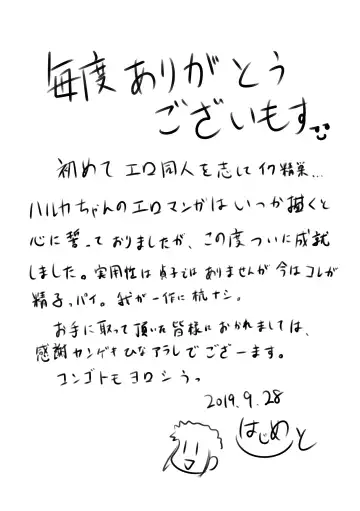 毎度ありがとう
ございもす
初めてエロ同人を志して何精巣…
ハルカちゃんのエロマンガはいつか描くと
心に誓っておりましたが、この度ついに成就
しました。実用性は貞子ではありませんが今はコレが
精子ッパイ。我が一作に杭ナシ。
お手に取って頂いた皆様におかれましては、
感謝カンゲキひなアラレでござーます。
コンゴトモヨロシうっ
2019.9.28
はじめと